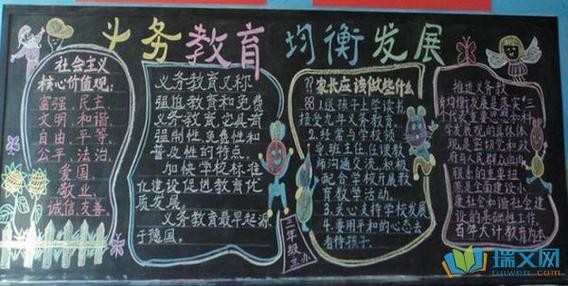 义务教育 均衡发展
社会主义
核心价值观:
富强、民主、
文明、和谐、
自由、平等、
公平、法治、
爱国、
敬业、
诚信、友善。
义务教育又称
强迫教育和免费
义务教育,它具有
强制性、免费性和
普及性的特点。
加快学校标准
化建设促进教育优
质发展。
义务教育最早起源
于德国。
家长应该做些什么
1.送孩子上学读书
接受九年义务教育
2.经常与学校领
导、班主任、任课教
师沟通交流,积极
配合学校开展教
育教学活动。
3.关心支持学校发展
4.要用平和的心态去
看待孩子。
三年级
推进义务教
育均衡发展是落实“三
个代表重要思想和科
学发展观的具体体
现,是密切党和政
府与人民群众血肉
联系的重要纽
带,是全面建设小
康社会和谐社会建
设的基础性工作
百年大计教育为本
瑞文网
ruiwen.com